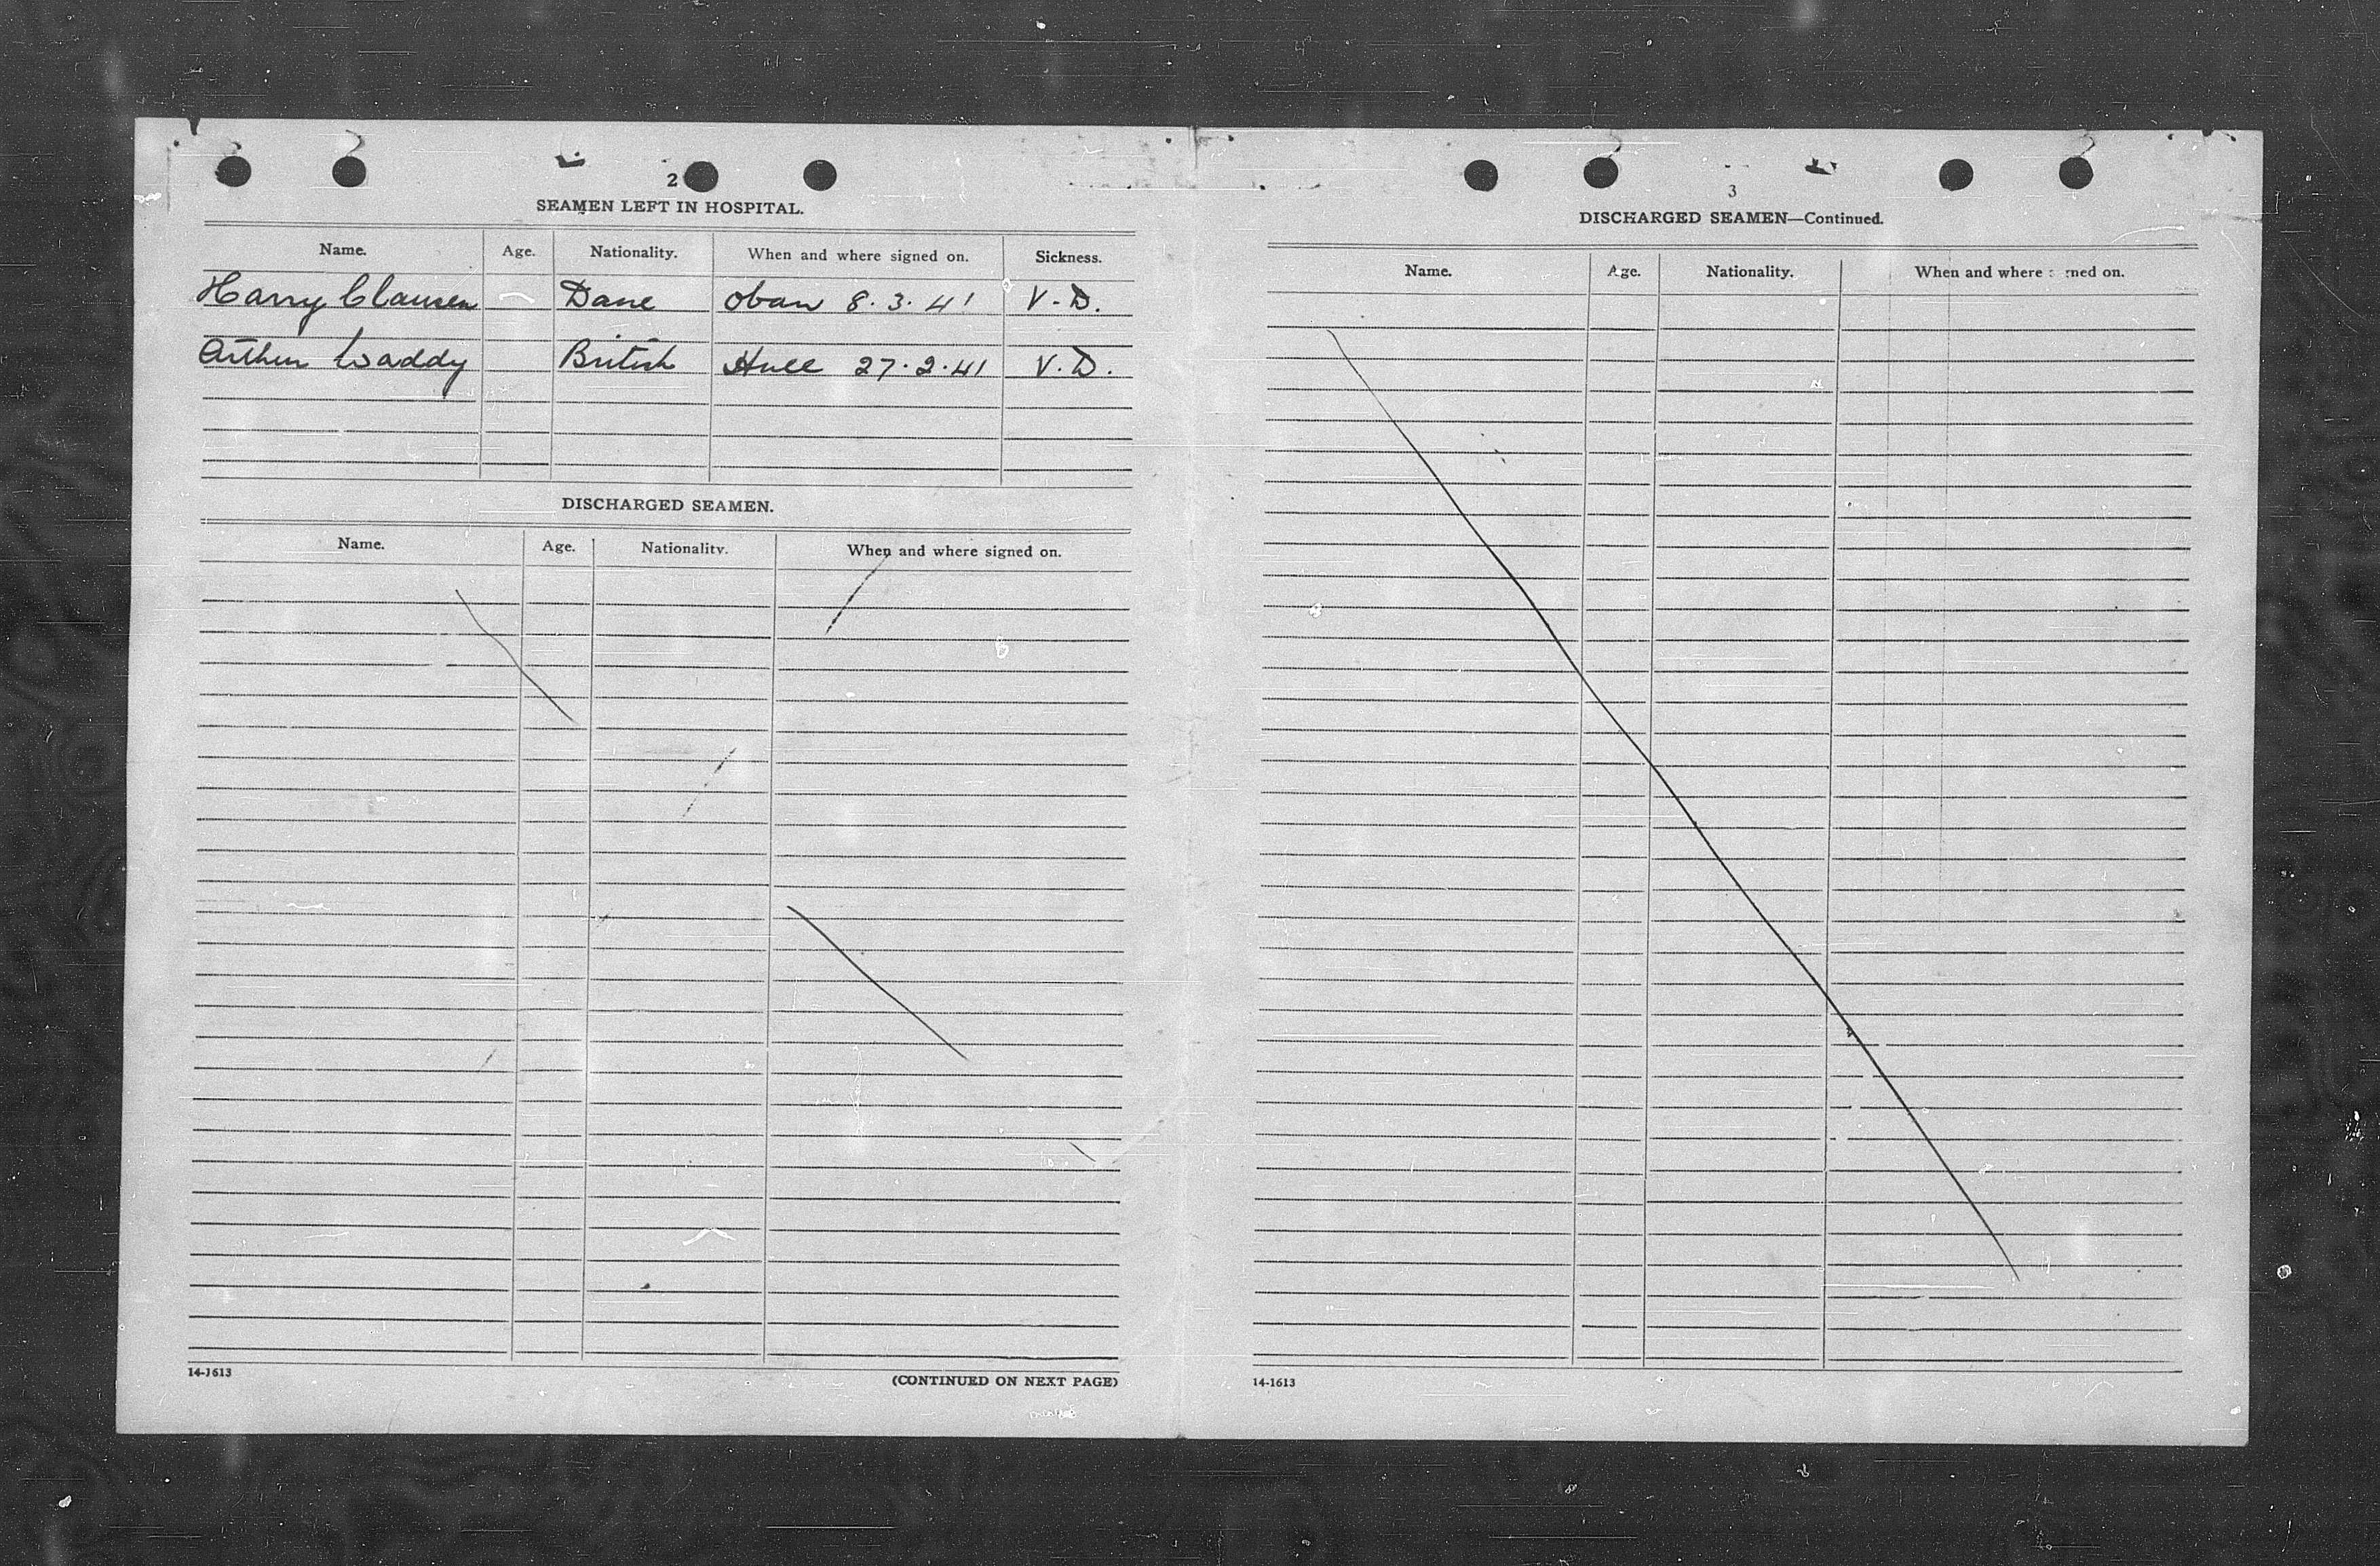 2
SEAMEN LEFT IN HOSPITAL.
Name. Age. Nationality. When and where signed on. Sickness.
Harry Clausen Dane Oban 8.3.41 V.D.
Arthur Waddy British Hull 27.2.41 V.D.
DISCHARGED SEAMEN.
Name. Age. Nationality. When and where signed on.
14-1613
(CONTINUED ON NEXT PAGE)
3
DISCHARGED SEAMEN—Continued.
Name. Age. Nationality. When and where signed on.
14-1613